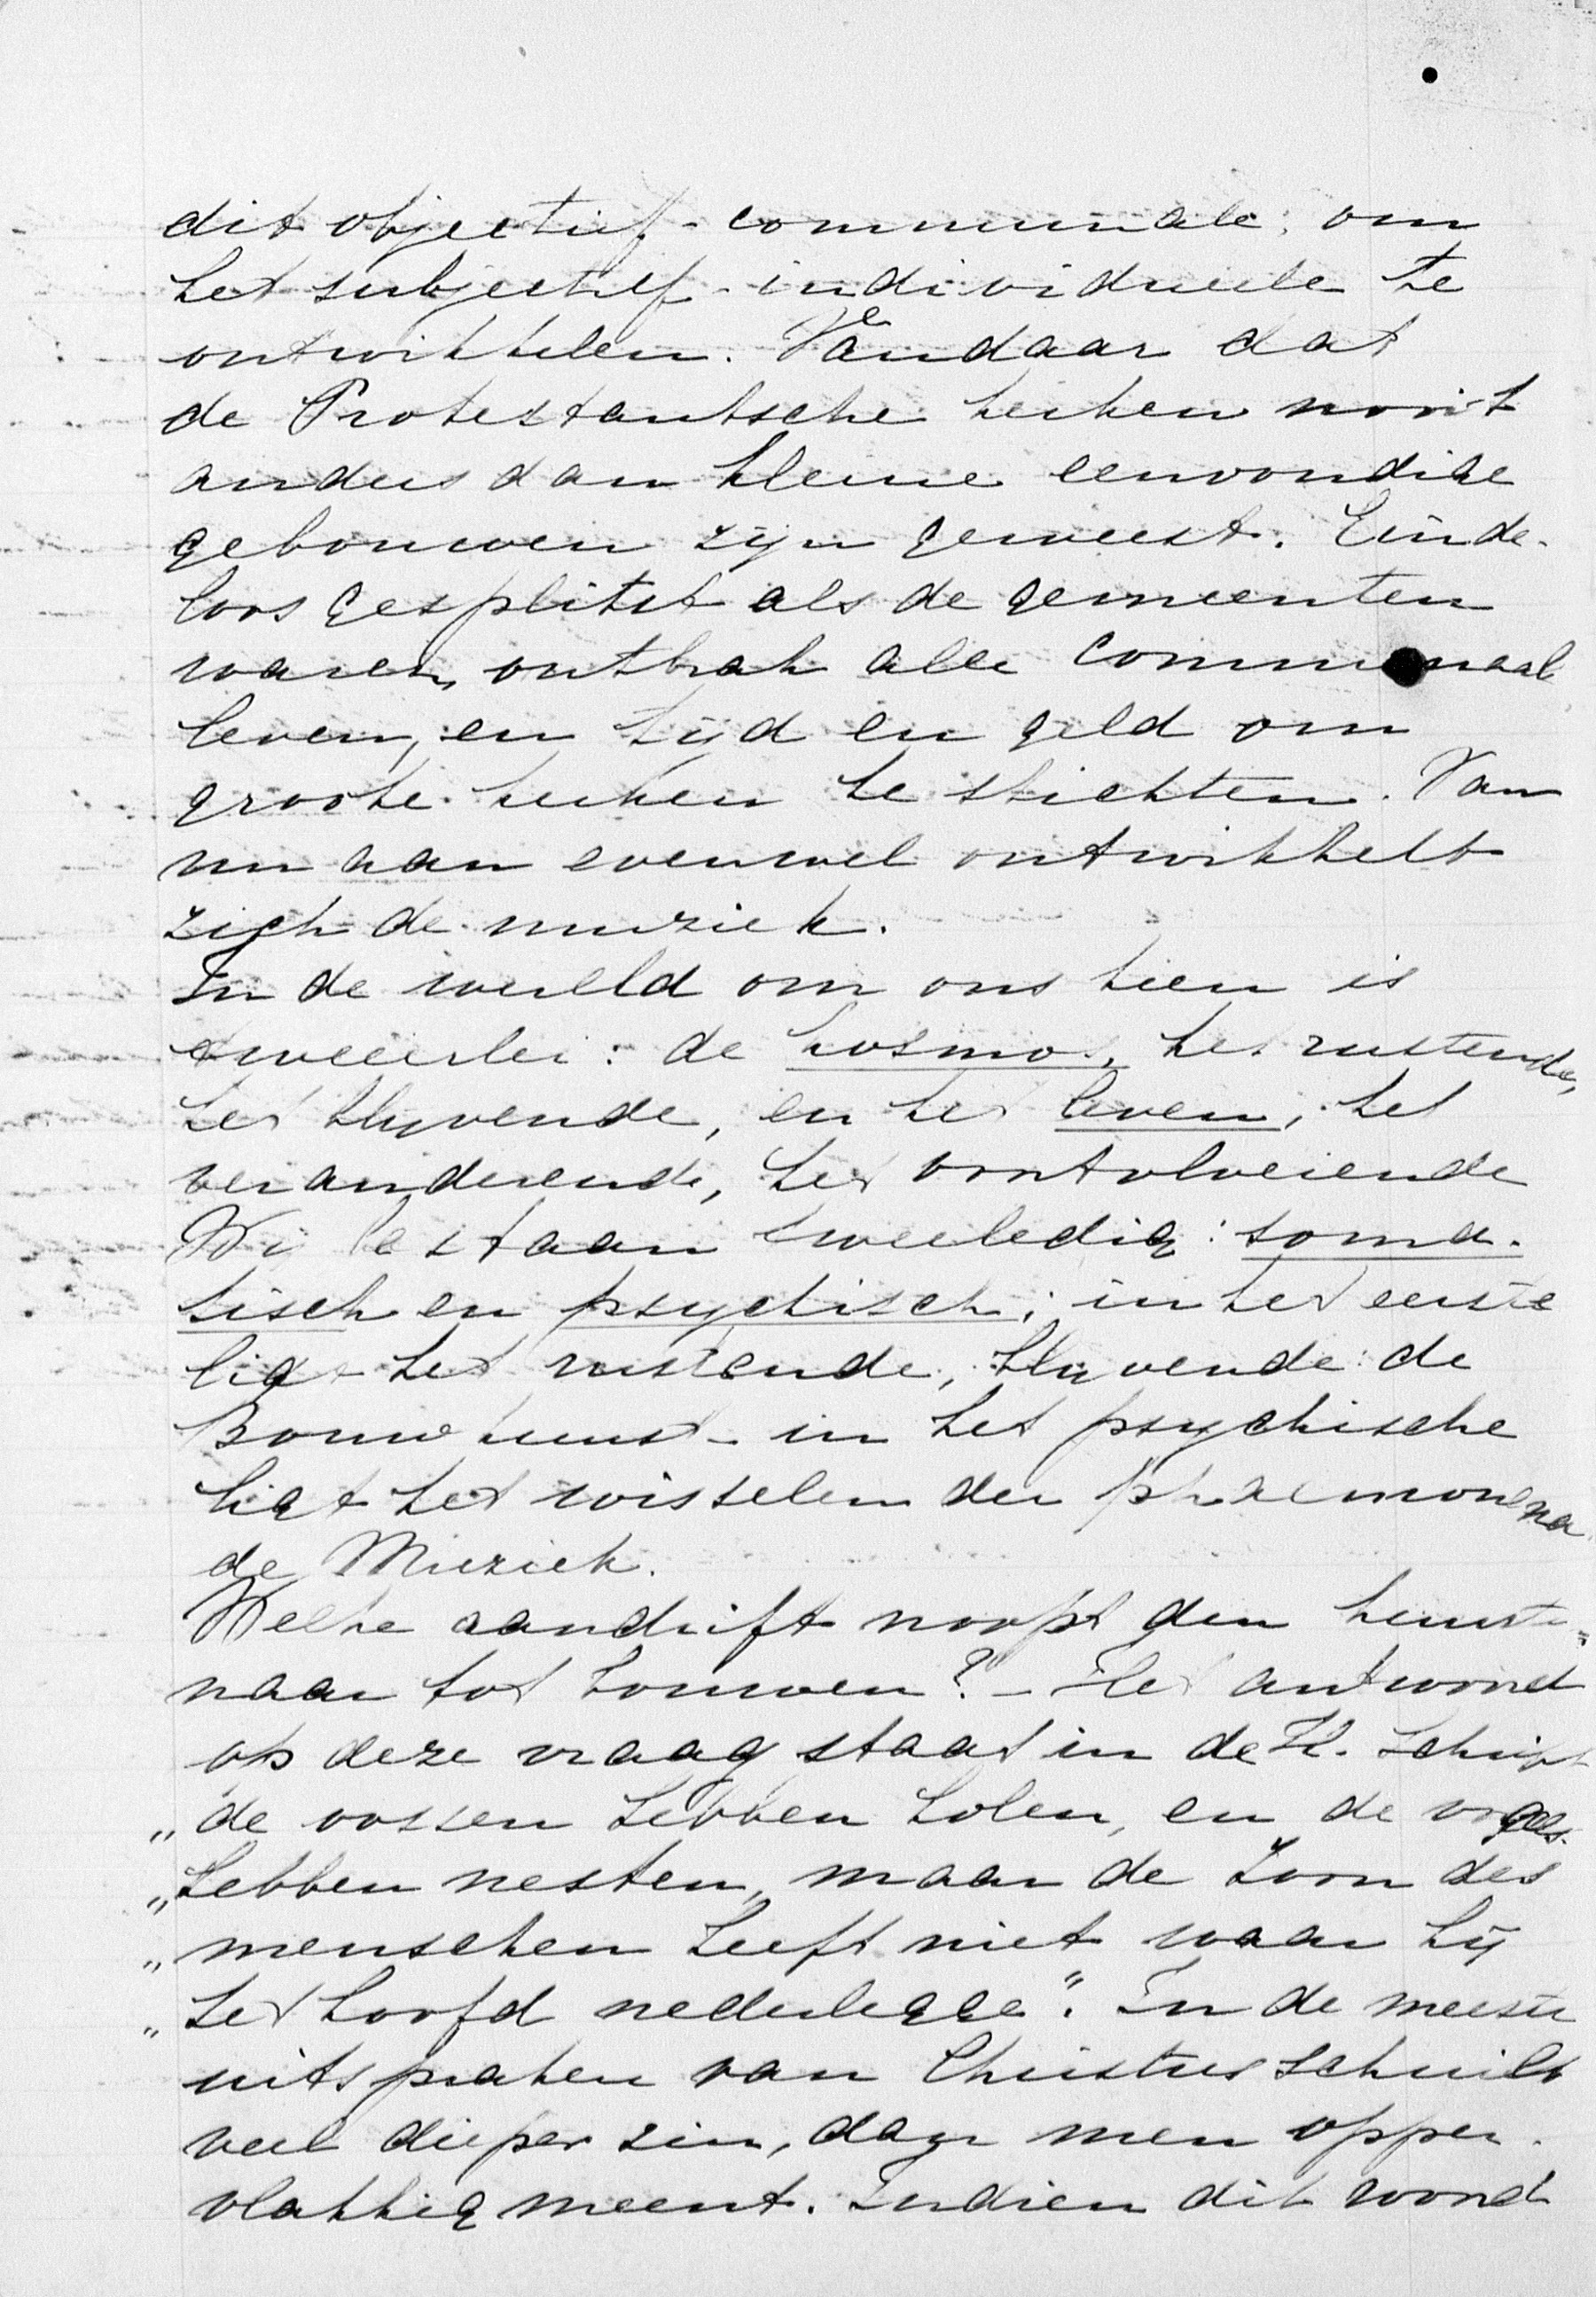 dit objectief-communale; om
het subjectief-individueele te
ontwikkelen. Vandaar dat
de Protestantsche kerken nooit
anders dan kleine eenvoudige
gebouwen zijn geweest. Einde-
loos gesplitst als de gemeenten
waren, ontbrak alle communaal
leven, en tijd en geld om
groote kerken te stichten. Van
nu aan evenwel ontwikkelt
zich de muziek.
In de wereld om ons heen is
tweeerlei: de kosmos, het rustende,
het blijvende, en het leven, het
veranderende, het voortvloeiende
Wij bestaan tweeledig: soma-
tisch en psychisch; in het eerste
ligt het rustende, blijvende: de
Bouwkunst - in het psychische
ligt het wisselen der phaenomena
de Muziek.
Welke aandrift noopt den kunste-
naar tot bouwen? - Het antwoord
op deze vraag staat in de H. Schrift
„de vossen hebben holen, en de vogels
„hebben nesten, maar de Zoon des
„menschen heeft niet waar hij
„het hoofd nederlegge". In de meeste
uitspraken van Christus schuilt
veel dieper zin, dan men opper-
vlakkig meent. Indien dit woord